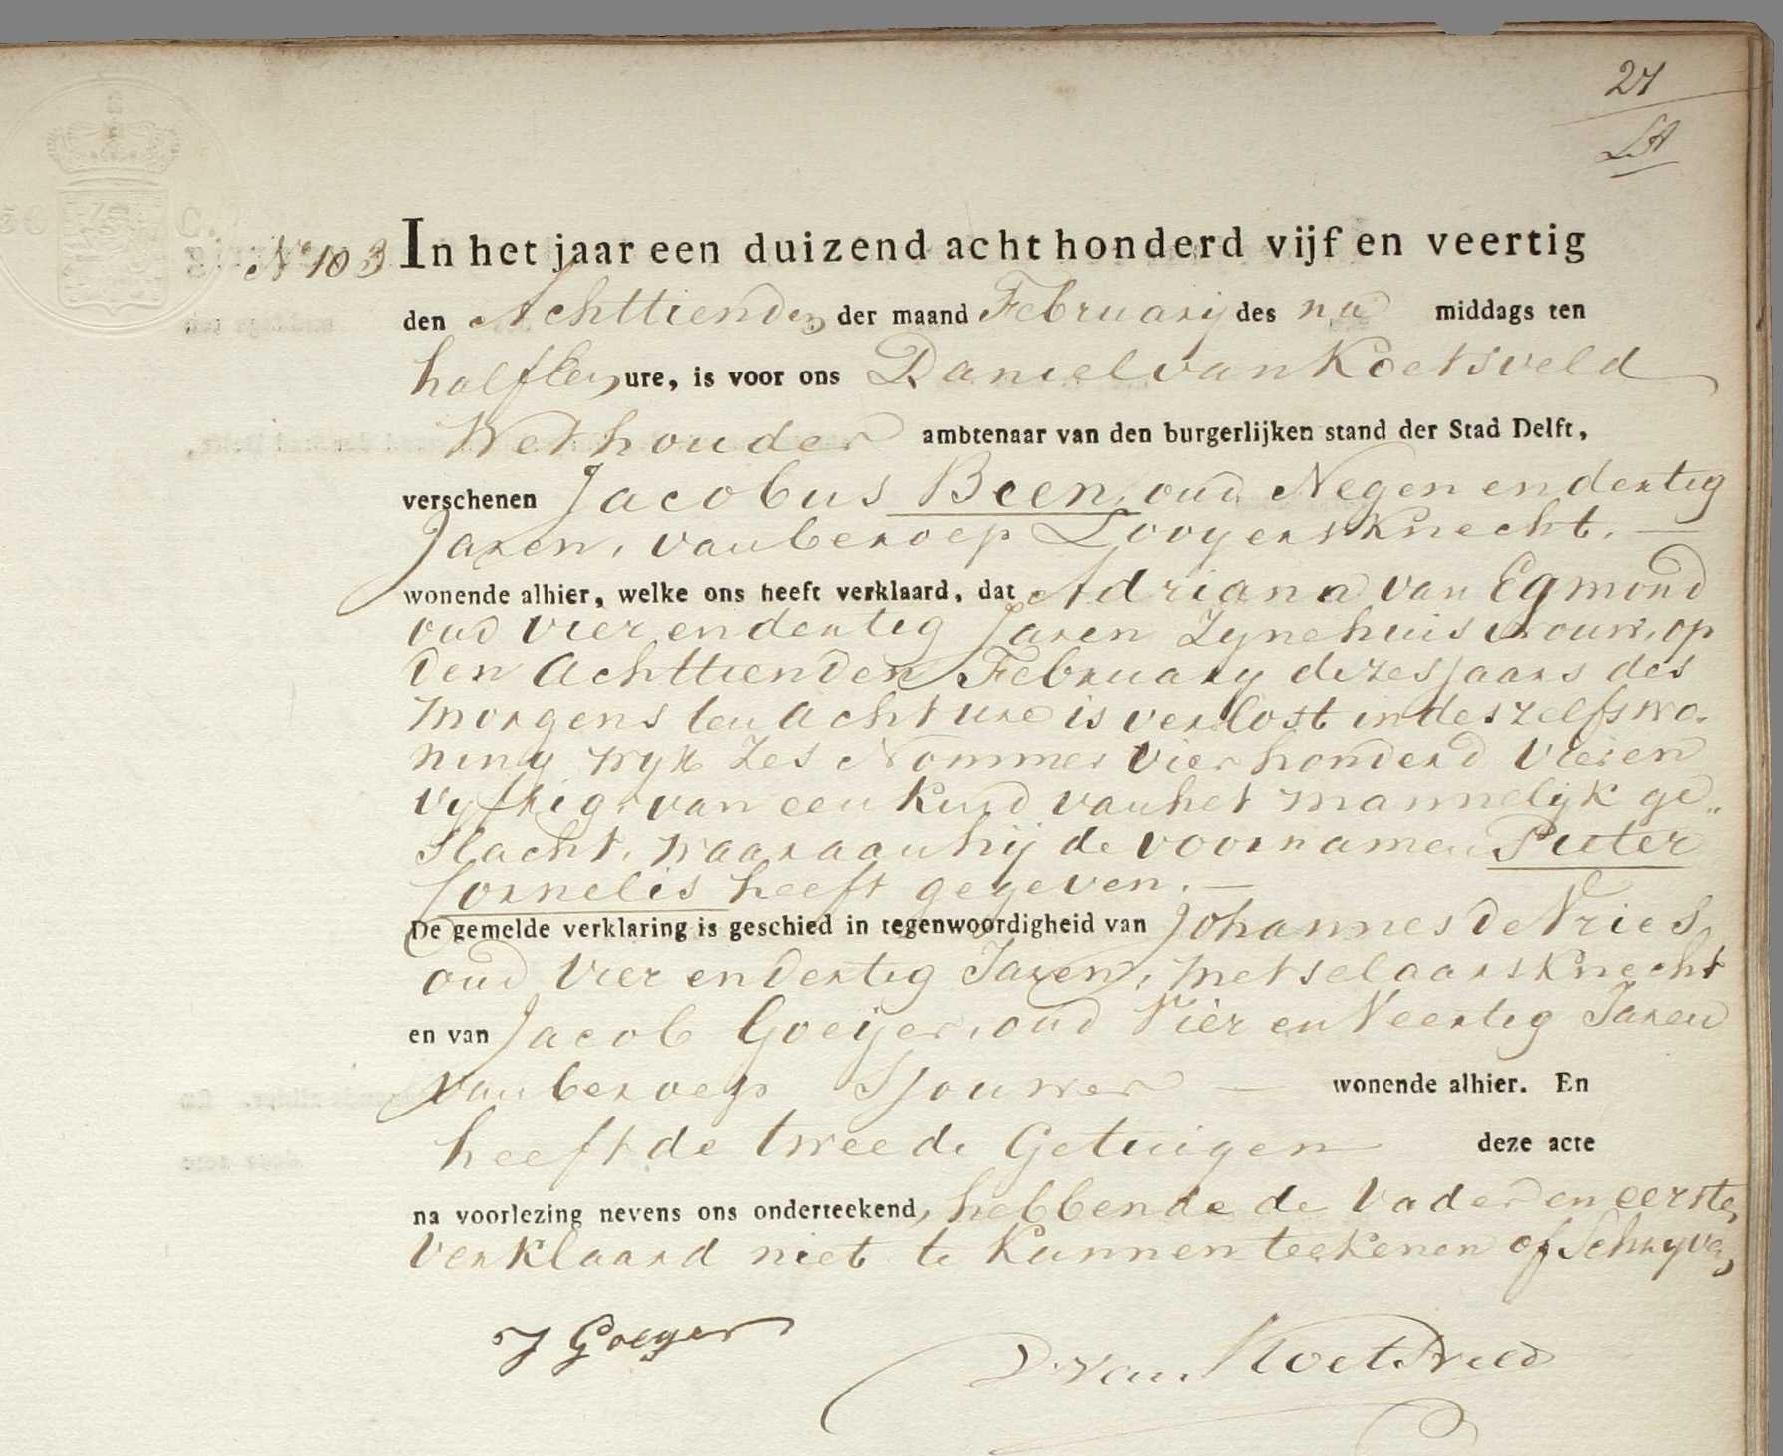 27
N° 103 In het jaar een duizend acht honderd vijf en veertig
den Achttienden der maand February des na middags ten
half een ure, is voor ons Daniel van Koetsveld
Wethouder ambtenaar van den burgerlijken stand der Stad Delft,
verschenen Jacobus Been, oud Negen en dertig
Jaren, van beroep Looyersknecht. —
wonende alhier, welke ons heeft verklaard, dat Adriana van Egmond
oud vier en dertig Jaren Zyne huisvrouw, op
den Achttienden February dezes jaars des
morgens ten acht ure is verlost in deszelfs wo-
ning wyk Zes Nommer vier honderd vier en
vyftig, van een kind van het mannelijk ge„
slacht, waaraan hij de voornamen Pieter
Cornelis heeft gegeven. —
De gemelde verklaring is geschied in tegenwoordigheid van Johannes de Vries,
oud Vier en dertig Jaren, metselaarsknecht
en van Jacob Goeijer, oud Vier en Veertig Jaren
van beroep Sjouwer — wonende alhier. En
heeft de tweede Getuigen deze acte
na voorlezing nevens ons onderteekend, hebbende de Vader en eerste
verklaard niet te kunnen teekenen of Schryven
J Goeyer
D. van Koetsveld